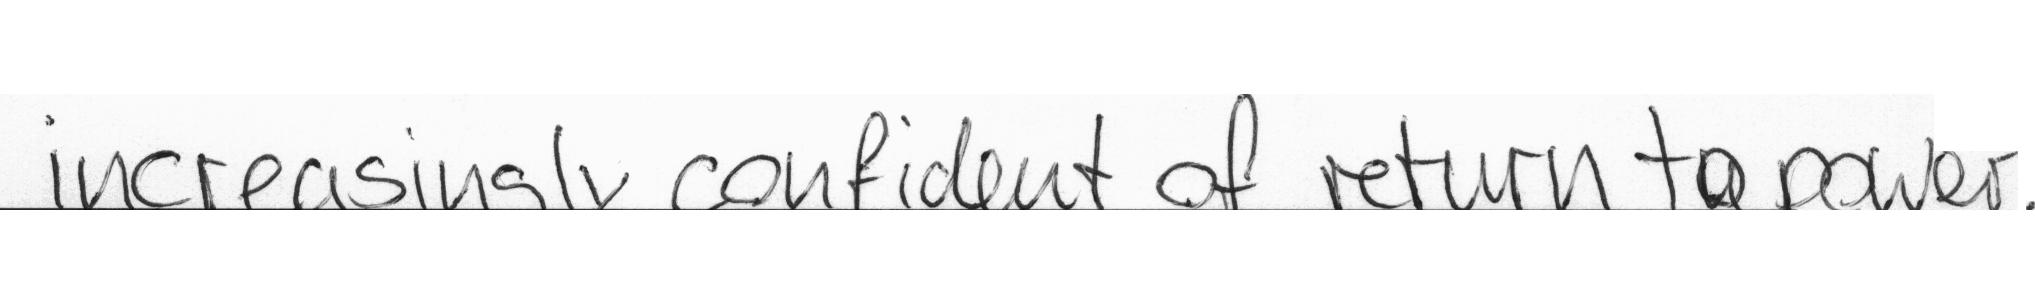 increasingly confident of return to power.